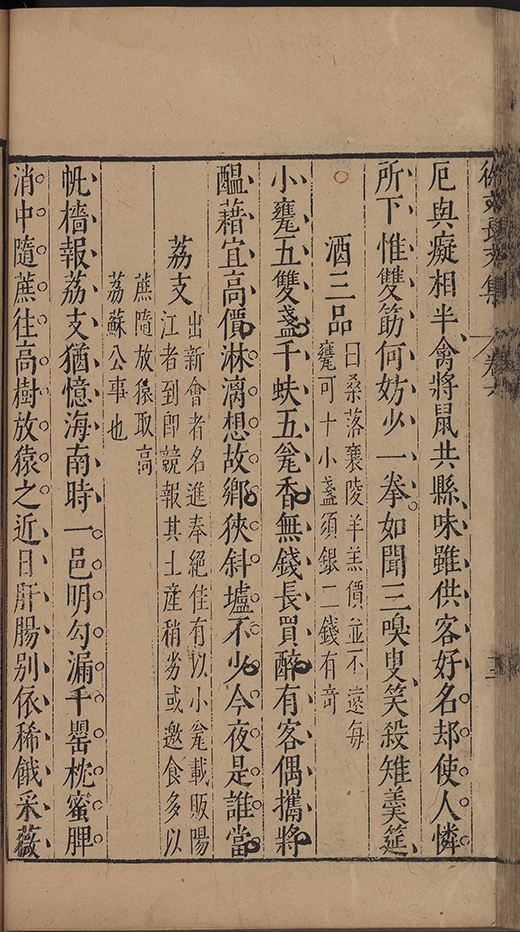 徐文長文集 卷六
厄與癡相半禽將鼠共縣味雖供客好名却使人憐
所下惟雙筯何妨少一拳如聞三嗅叟笑殺雉羹筵
酒三品 曰桑落襄陵羊羔價並不遠每
甕可十小盞須銀二錢有奇
小甕五雙盞千蚨五瓮香無錢長買醉有客偶攜將
醖藉宜高價淋漓想故鄉狹斜壚不少今夜是誰當
荔支 出新會者名進奉絕佳有以小瓮載販陽
江者到卽競報其土産稍劣或邀食多以
蔗隨放猿取高
荔蘇公事也
帆檣報荔支猶憶海南時一邑明勾漏千罌枕蜜脾
消中隨蔗往高樹放猿之近日肝腸别依稀餓采薇